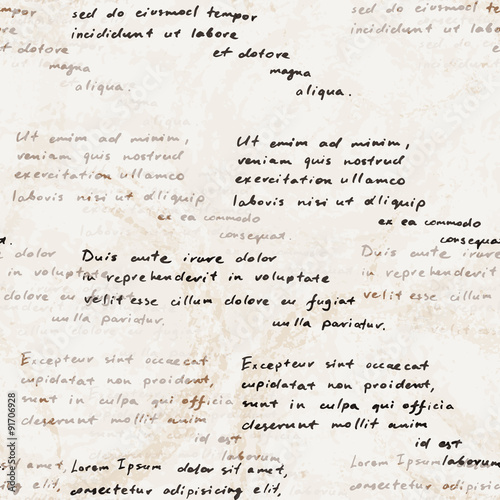 sed do eiusmod tempor
incididunt ut labore
et dolore
magna
aliqua.
incididunt ut labore
et dolore
magna
aliqua.
Ut emim ad minim,
veniam quis nostrud
exercitation ullamco
laboris nisi ut dliquip
ex ea commodo
consequat.
Ut emim ad minim,
veniam quis nostrud
exercitation ullamco
laboris nisi ut dliquip
ex ea commodo
consequat.
dolor
in voluptate
dolore eu fugiat
nulla pariatur.
Duis aute irure dolor
in reprehenderit in voluptate
velit esse cillum dolore eu fugiat
nulla pariatur.
Duis aute irure
in reprehenderit
velit esse cillum
Excepteur sint occaecat
cupidatat non proident,
sunt in culpa qui officia
deserunt mollit anim
id est
laborum.
Excepteur sint occaecat
cupidatat non proident,
sunt in culpa qui officia
deserunt mollit anim
id est
laborum
amet,
elit,
Lorem Ipsum dolor sit amet,
consectetur adipisicing elit,
Lorem Ipsum
consectetur adipisicing
Adobe Stock
#91706928